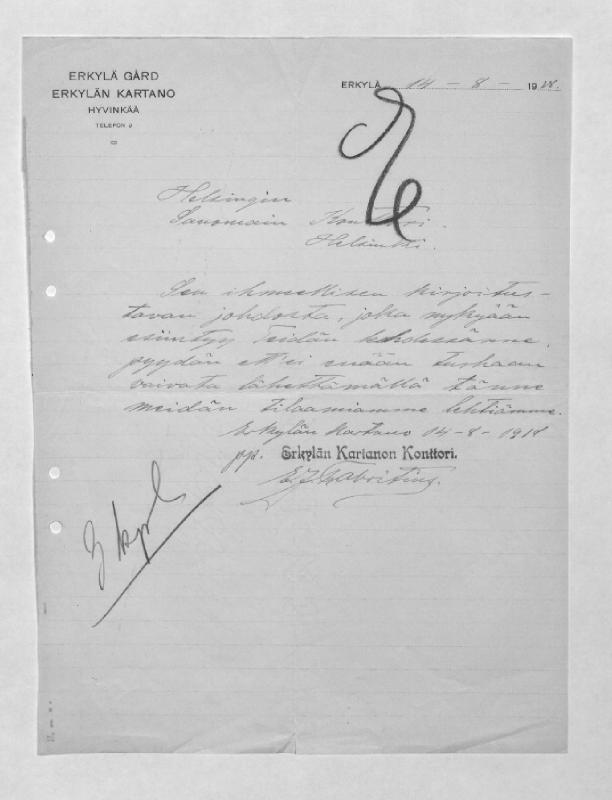 ERKYLÄ GÅRD
ERKYLÄN KARTANO
HYVINKÄÄ
TELEFON 9
ERKYLÄ 14 – 8 – 1918.
Helsingin
Sanomain Konttori.
Helsinki.
Sen ihmeellisen kirjoitus-
tavan johdosta, joka nykyään
esiintyy Teidän lehdessänne,
pyydän ett'ei enään turhaan
vaivata lähettämällä tänne
meidän tilaamiamme lehtiämme.
Erkylän Kartano 14-8-1918
pp. Erkylän Kartanon Konttori.
3 kpl